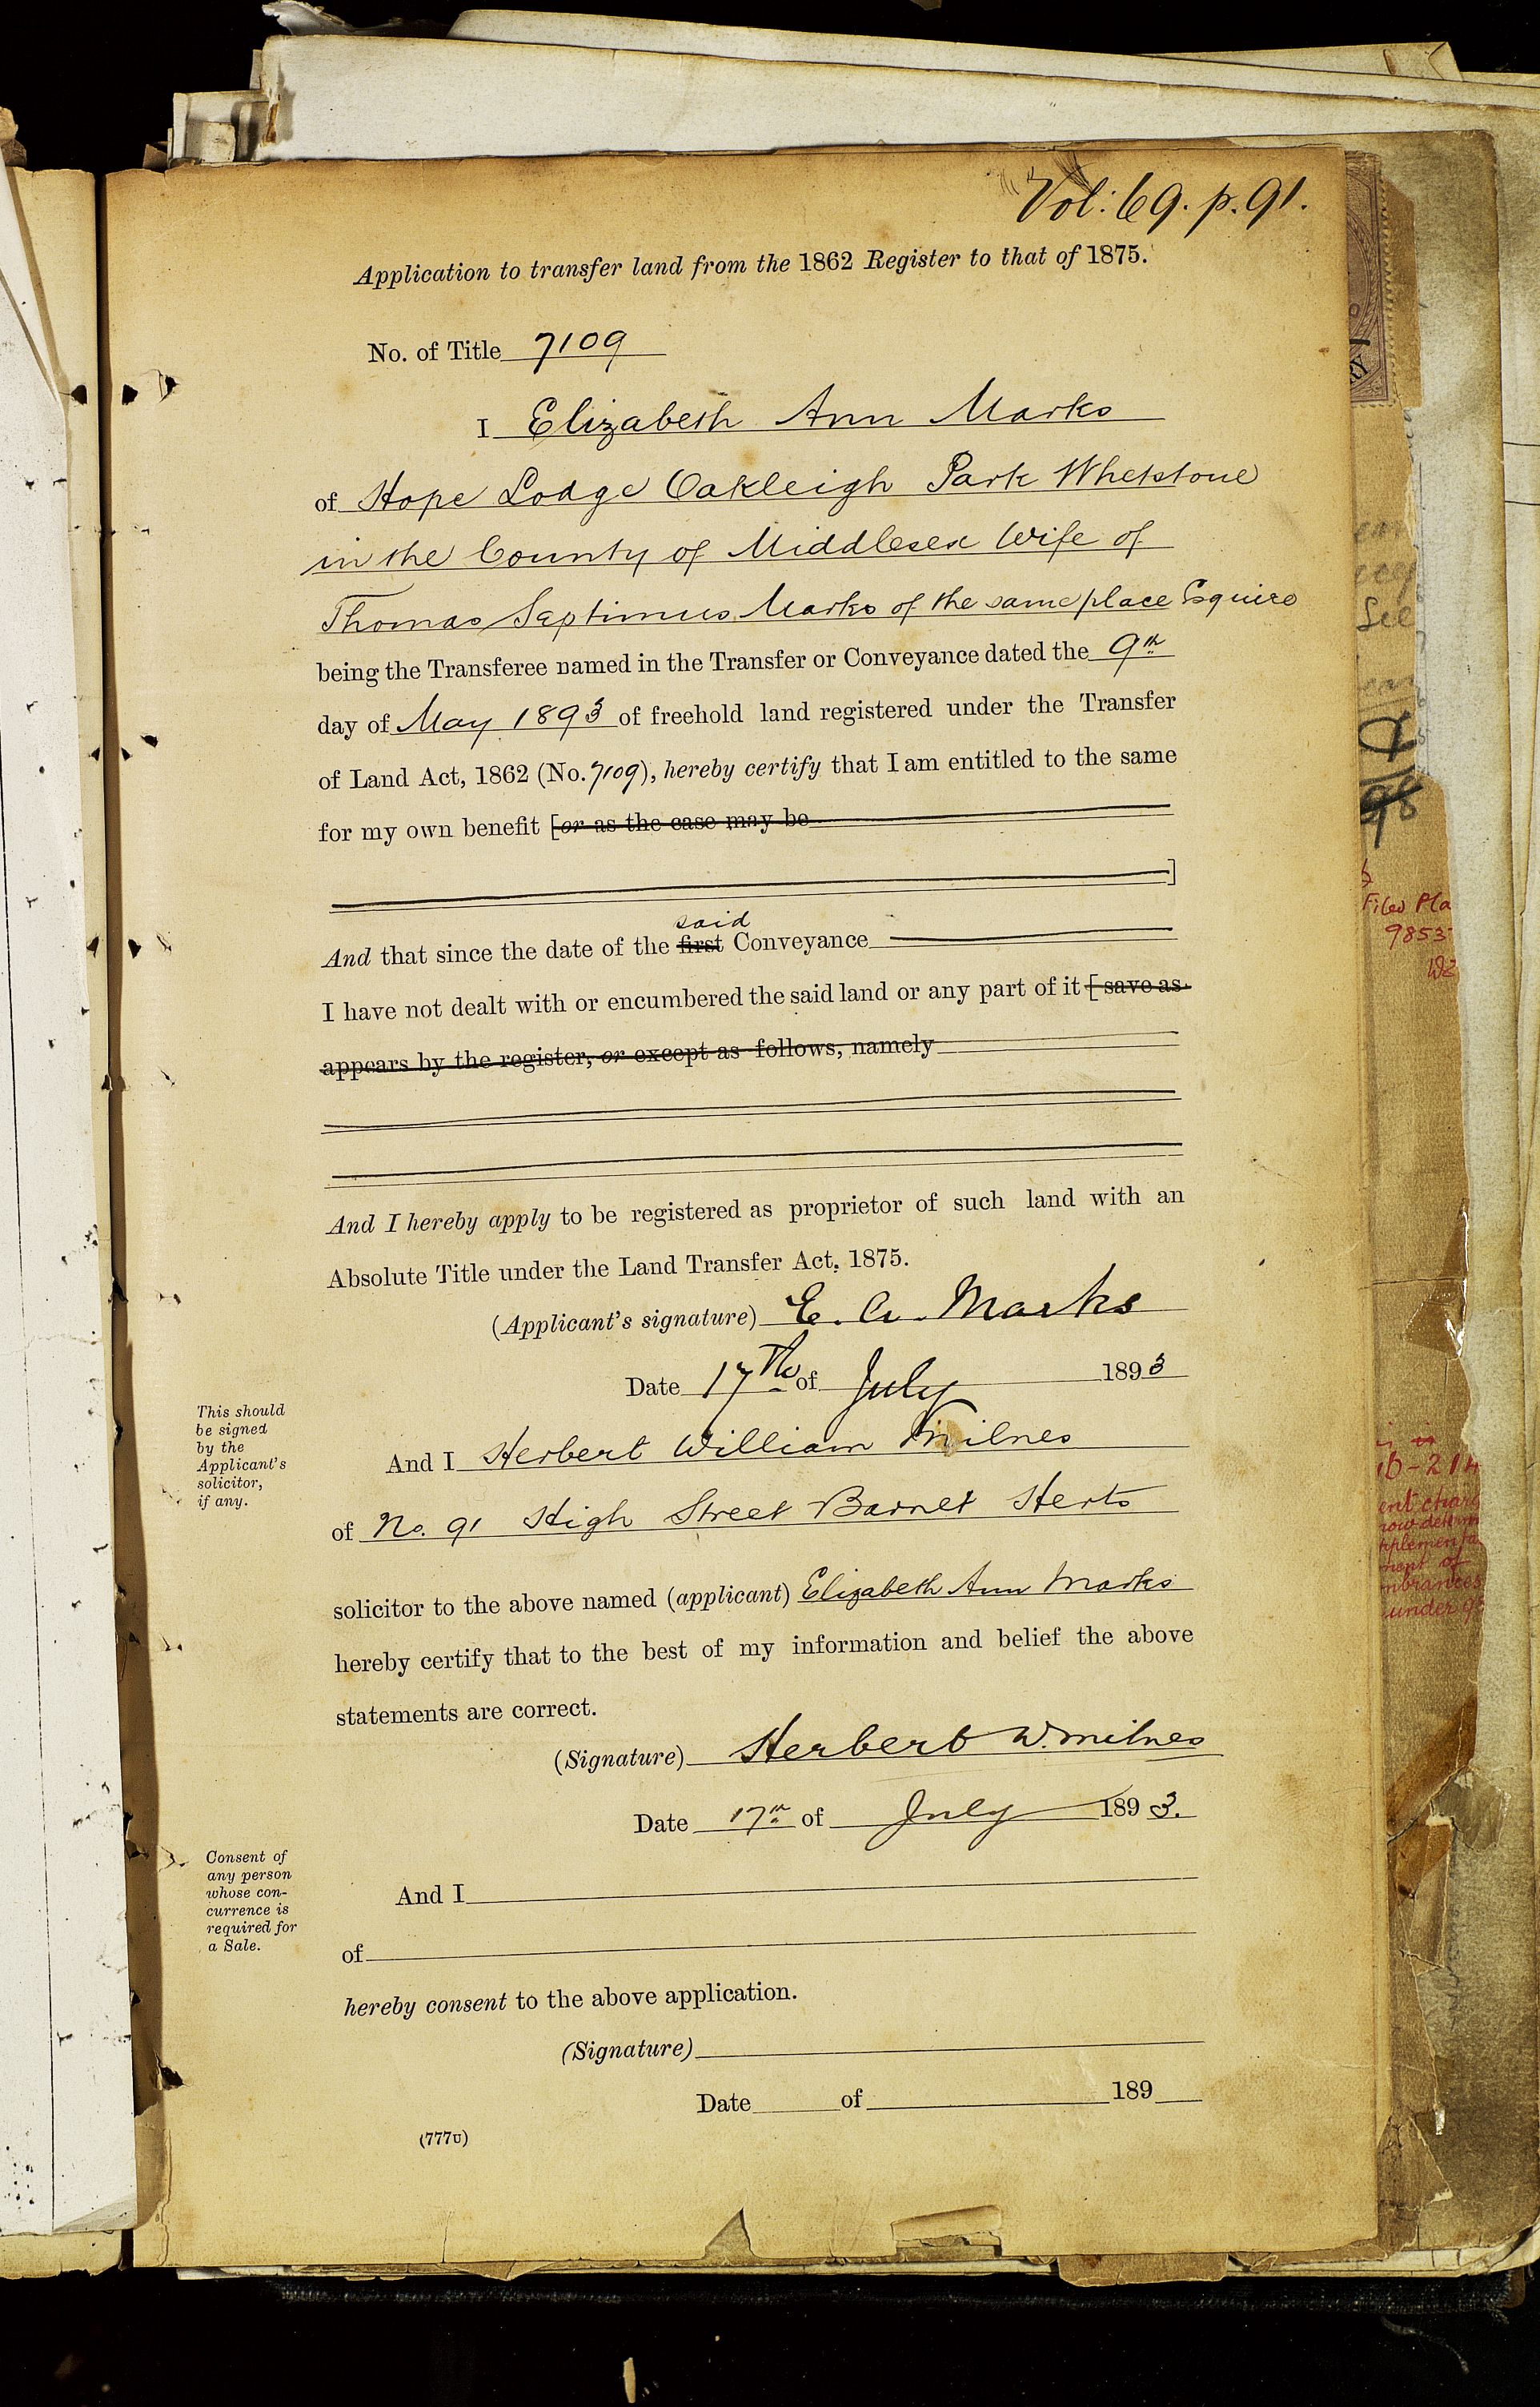 Vol: 69. p. 91.
Application to transfer land from the 1862 Register to that of 1875.
No. of Title 7109
I Elizabeth Ann Marks
of Hope Lodge Oakleigh Park Whetstone
in the County of Middlesex Wife of
Thomas Septimus Marks of the same place Esquire
being the Transferee named in the Transfer or Conveyance dated the 9th
day of May 1893 of freehold land registered under the Transfer
of Land Act, 1862 (No. 7109), hereby certify that I am entitled to the same
for my own benefit [or as the case may be
]
said
And that since the date of the first Conveyance
I have not dealt with or encumbered the said land or any part of it [save as
appears by the register, or except as follows, namely
And I hereby apply to be registered as proprietor of such land with an
Absolute Title under the Land Transfer Act, 1875.
(Applicant's signature) E. A. Marks
Date 17th of July 1893
This should
be signed
by the
Applicant's
solicitor,
if any.
And I Herbert William Milnes
of No. 91 High Street Barnet Herts
solicitor to the above named (applicant) Elizabeth Ann Marks
hereby certify that to the best of my information and belief the above
statements are correct.
(Signature) Herbert W. Milnes
Date 17th of July 1893.
Consent of
any person
whose con-
currence is
required for
a Sale.
And I
of
hereby consent to the above application.
(Signature)
Date of 189
(777U)
98
Filed Pla
9853